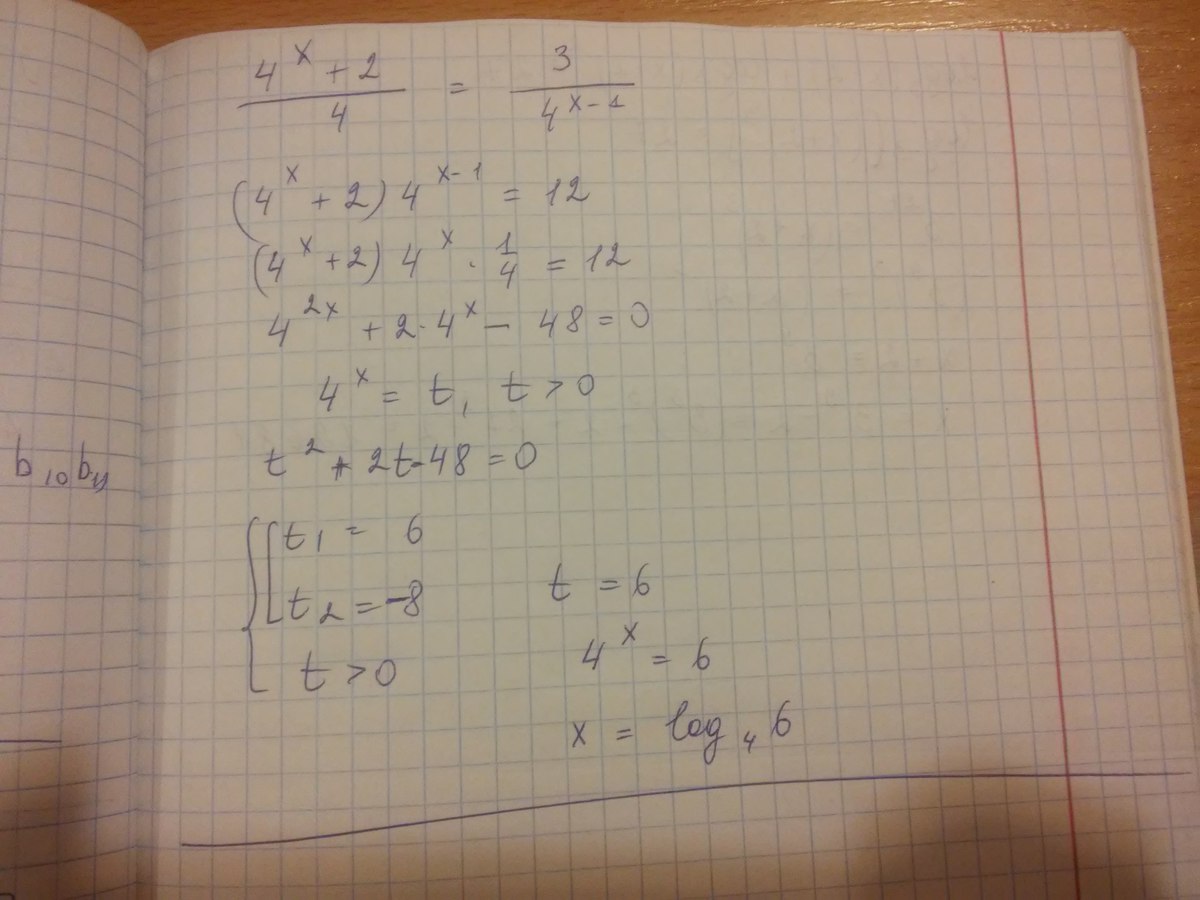 (4^x + 2)/4 = 3/4^(x-1)
(4^x + 2) 4^(x-1) = 12
(4^x + 2) 4^x · 1/4 = 12
4^(2x) + 2·4^x - 48 = 0
4^x = t, t > 0
t^2 + 2t - 48 = 0
t_1 = 6
t_2 = -8
t > 0
t = 6
4^x = 6
x = log_4 6
b_10 b_11